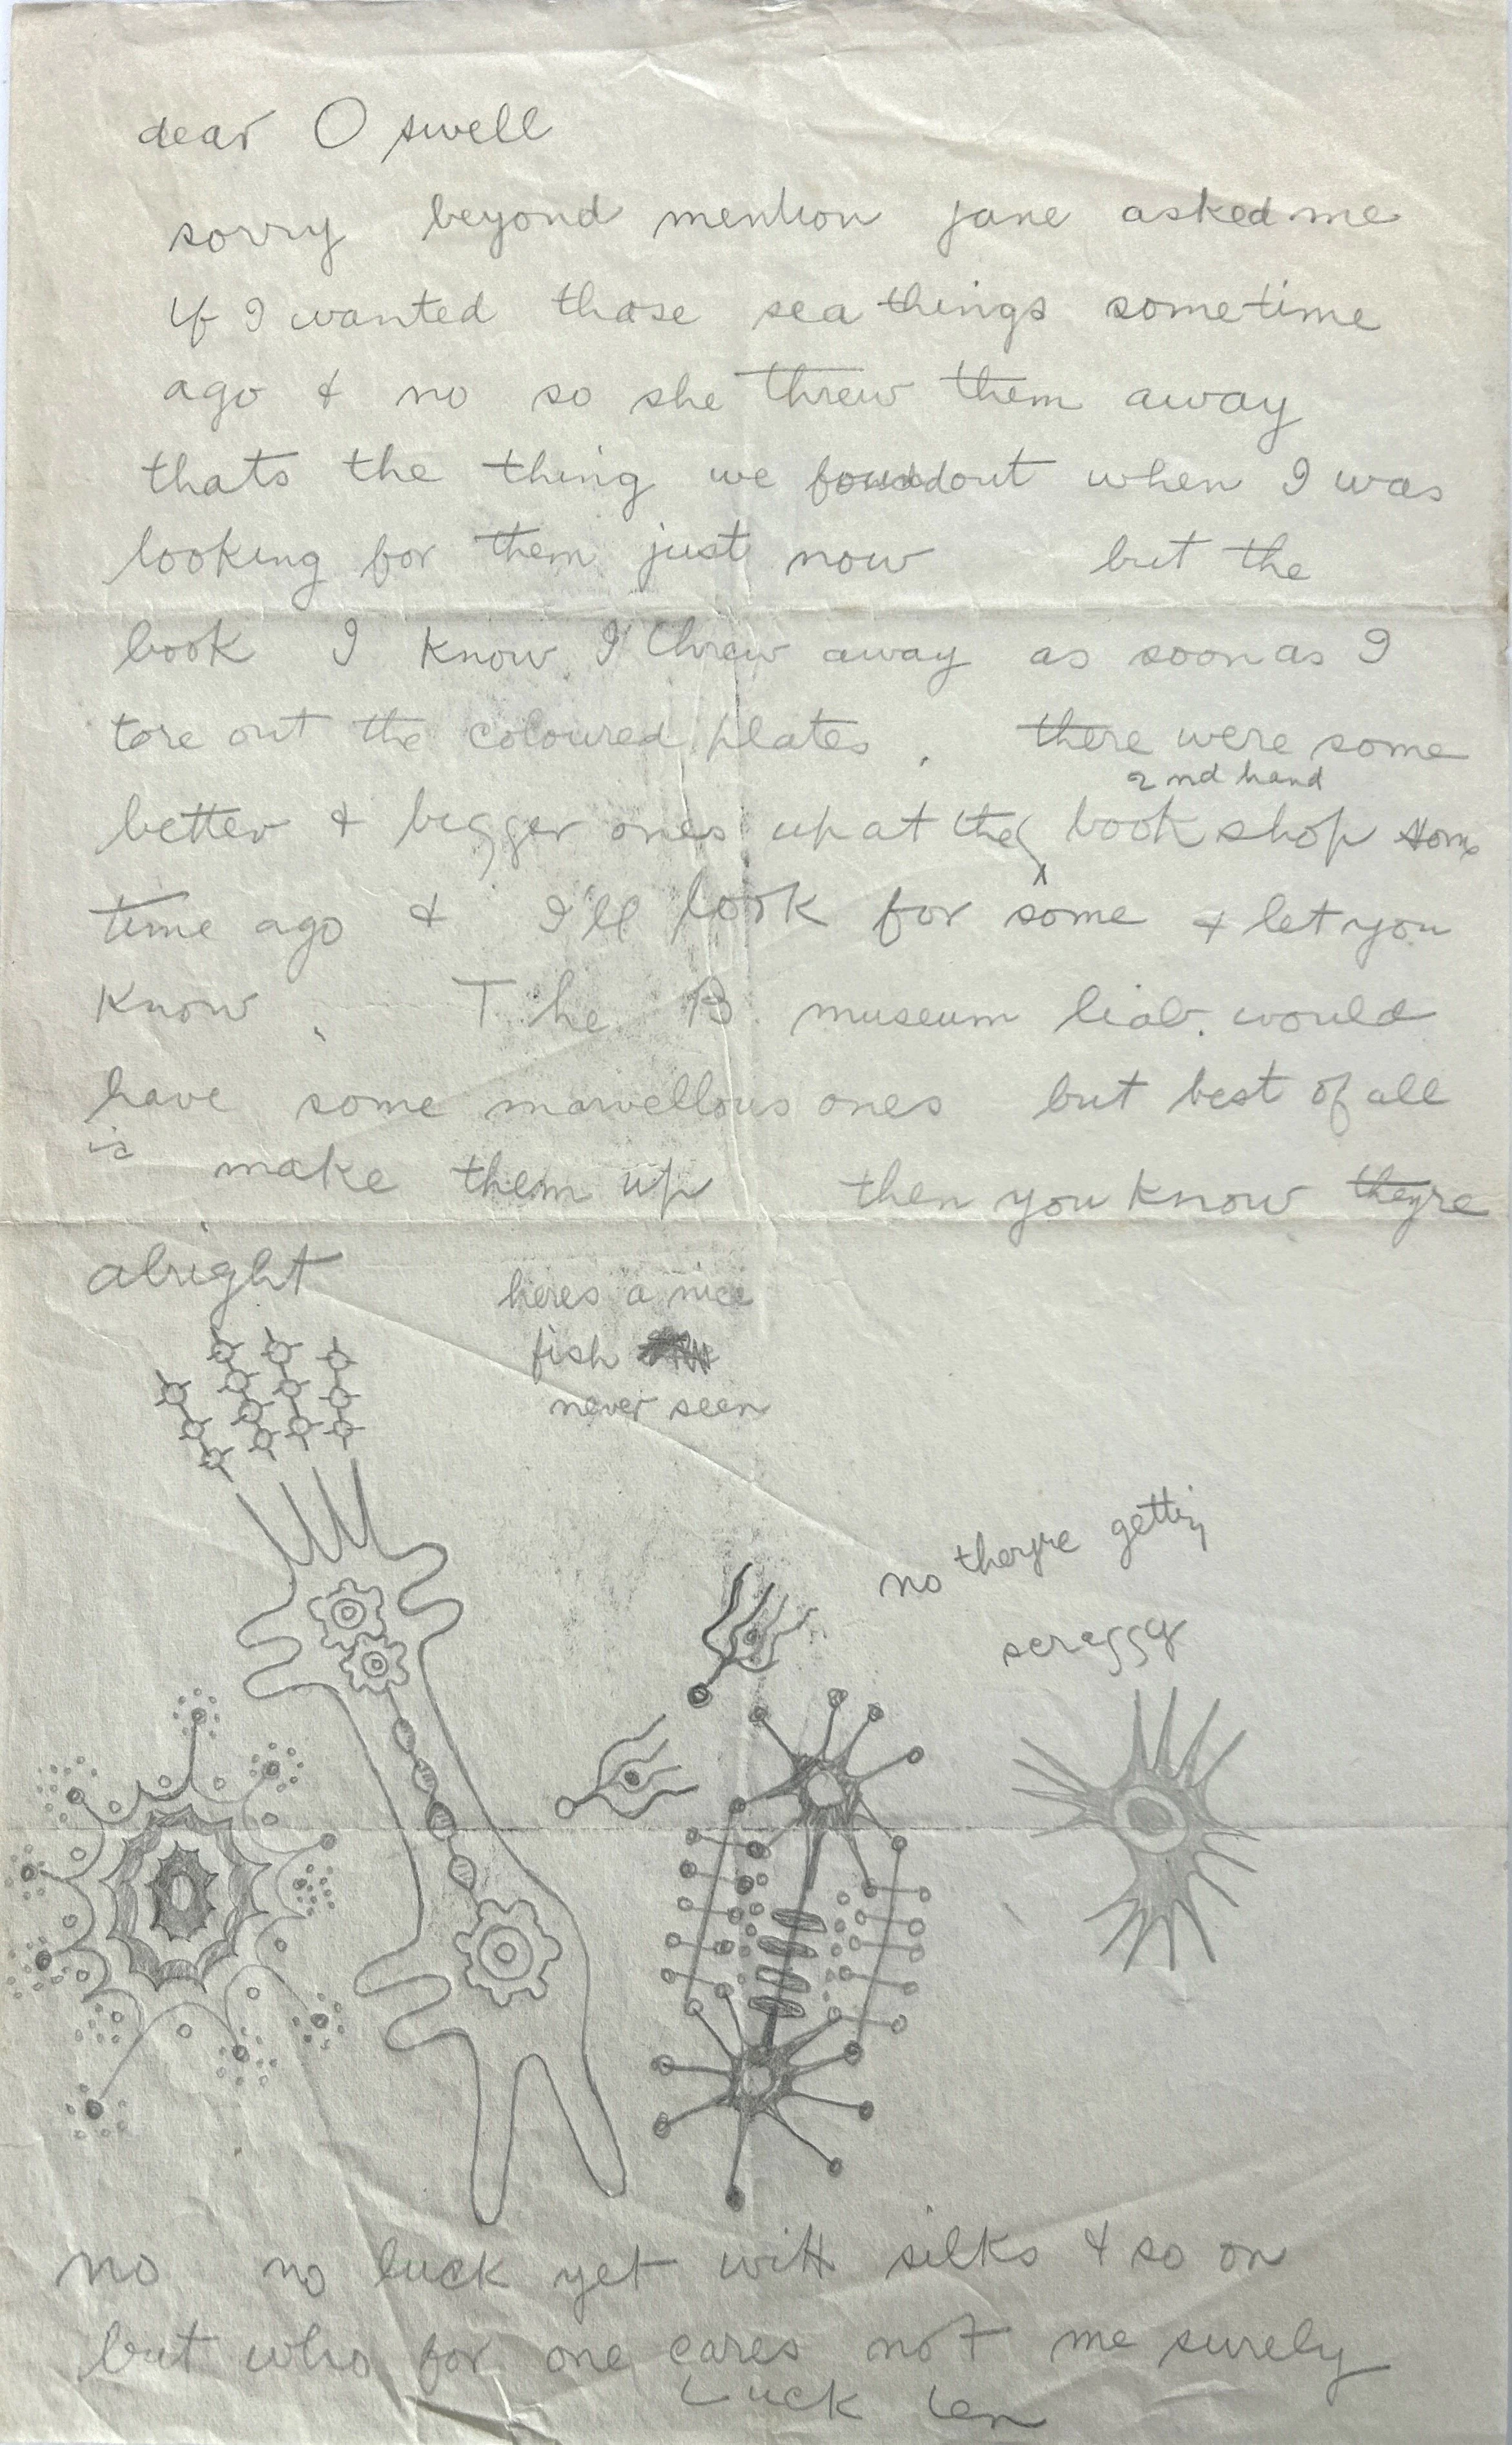 dear O swell
sorry beyond mention jane asked me
if I wanted those sea things sometime
ago & no so she threw them away
thats the thing we foundout when I was
looking for them just now but the
book I know I threw away as soon as I
tore out the coloured plates. there were some
2nd hand
better & bigger ones up at the book shop some
time ago & I'll look for some & let you
know. The B. museum would
have some marvellous ones but best of all
is make them up then you know theyre
alright
heres a nice
fish
never seen
no theyre getting
scraggy
no no luck yet with silks & so on
but who for one cares not me surely
Luck Len